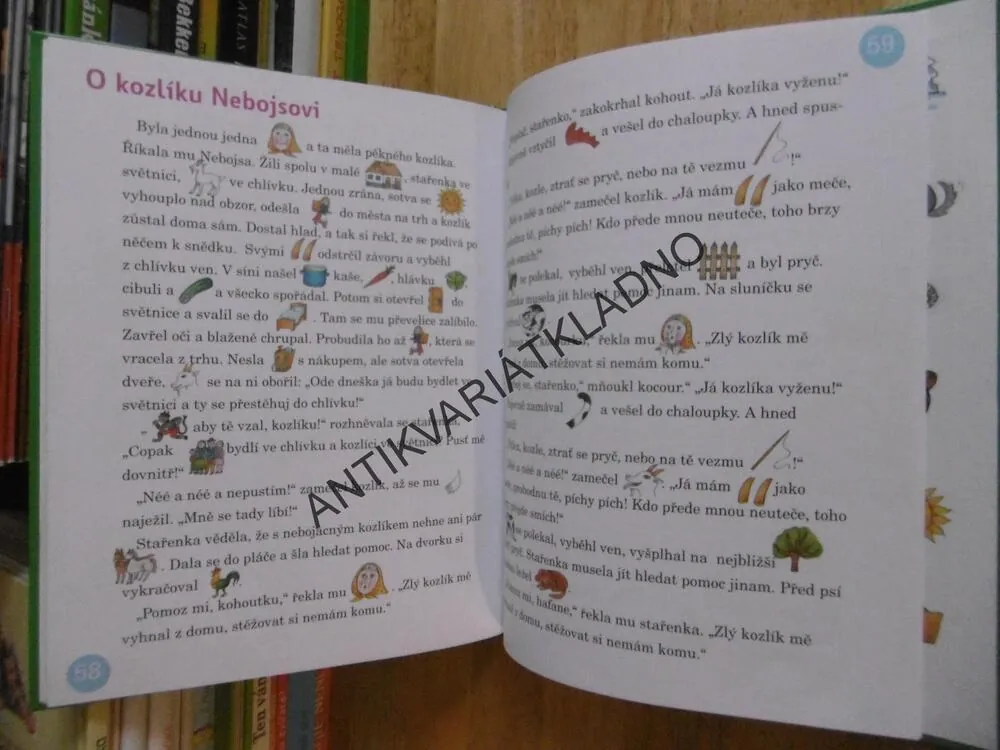 O kozlíku Nebojsovi
Byla jednou jedna a ta měla pěkného kozlíka.
Říkala mu Nebojsa. Žili spolu v malé , stařenka ve
světnici, ve chlívku. Jednou zrána, sotva se
vyhouplo nad obzor, odešla do města na trh a kozlík
zůstal doma sám. Dostal hlad, a tak si řekl, že se podívá po
něčem k snědku. Svými odstrčil závoru a vyběhl
z chlívku ven. V síni našel kaše, , hlávku ,
cibuli a a všecko spořádal. Potom si otevřel do
světnice a svalil se do . Tam se mu převelice zalíbilo.
Zavřel oči a blaženě chrupal. Probudila ho až , která se
vracela z trhu. Nesla s nákupem, ale sotva otevřela
dveře, se na ni obořil: „Ode dneška já budu bydlet ve
světnici a ty se přestěhuj do chlívku!“
„ aby tě vzal, kozlíku!“ rozhněvala se stařenka,
„Copak bydlí ve chlívku a kozlíci ve světnici? Pusť mě
dovnitř!“
„Néé a néé a nepustím!“ zamečel kozlík, až se mu
naježil. „Mně se tady líbí!“
Stařenka věděla, že s nebojácným kozlíkem nehne ani pár
. Dala se do pláče a šla hledat pomoc. Na dvorku si
vykračoval .
„Pomoz mi, kohoutku,“ řekla mu . „Zlý kozlík mě
vyhnal z domu, stěžovat si nemám komu.“
58
59
stařenko,“ zakokrhal kohout. „Já kozlíka vyženu!“
vztyčil a vešel do chaloupky. A hned spus-
kozle, ztrať se pryč, nebo na tě vezmu !“
a néé!“ zamečel kozlík. „Já mám jako meče,
tě, píchy pích! Kdo přede mnou neuteče, toho brzy
smích!“
se polekal, vyběhl ven, a byl pryč.
musela jít hledat pomoc jinam. Na sluníčku se
řekla mu . „Zlý kozlík mě
z domu, stěžovat si nemám komu.“
se, stařenko,“ mňoukl kocour. „Já kozlíka vyženu!“
zamával a vešel do chaloupky. A hned
kozle, ztrať se pryč, nebo na tě vezmu !“
a néé!“ zamečel . „Já mám jako
probodnu tě, píchy pích! Kdo přede mnou neuteče, toho
přejde smích!“
se polekal, vyběhl ven, vyšplhal na nejbližší
pryč. Stařenka musela jít hledat pomoc jinam. Před psí
ležel .
mi, hafane,“ řekla mu stařenka. „Zlý kozlík mě
z domu, stěžovat si nemám komu.“
ANTIKVARIÁTKLADNO
ATLAS
Bekke
Ten ván